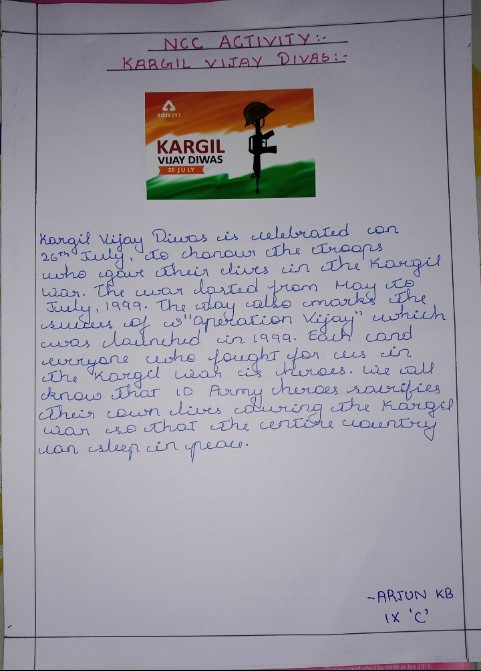 NCC ACTIVITY:-
KARGIL VIJAY DIVAS:-
KARGIL
VIJAY DIWAS
26 JULY
Kargil Vijay Diwas is celebrated on
26th July, to honour the troops
who gave their lives in the Kargil
War. The war lasted from May to
July, 1999. The day also marks the
success of "Operation Vijay" which
was launched in 1999. Each and
everyone who fought for us in
the Kargil war is heroes. We all
know that 10 Army heroes sacrifies
their own lives during the Kargil
war so that the entire country
can sleep in peace.
-ARJUN KB
IX 'C'